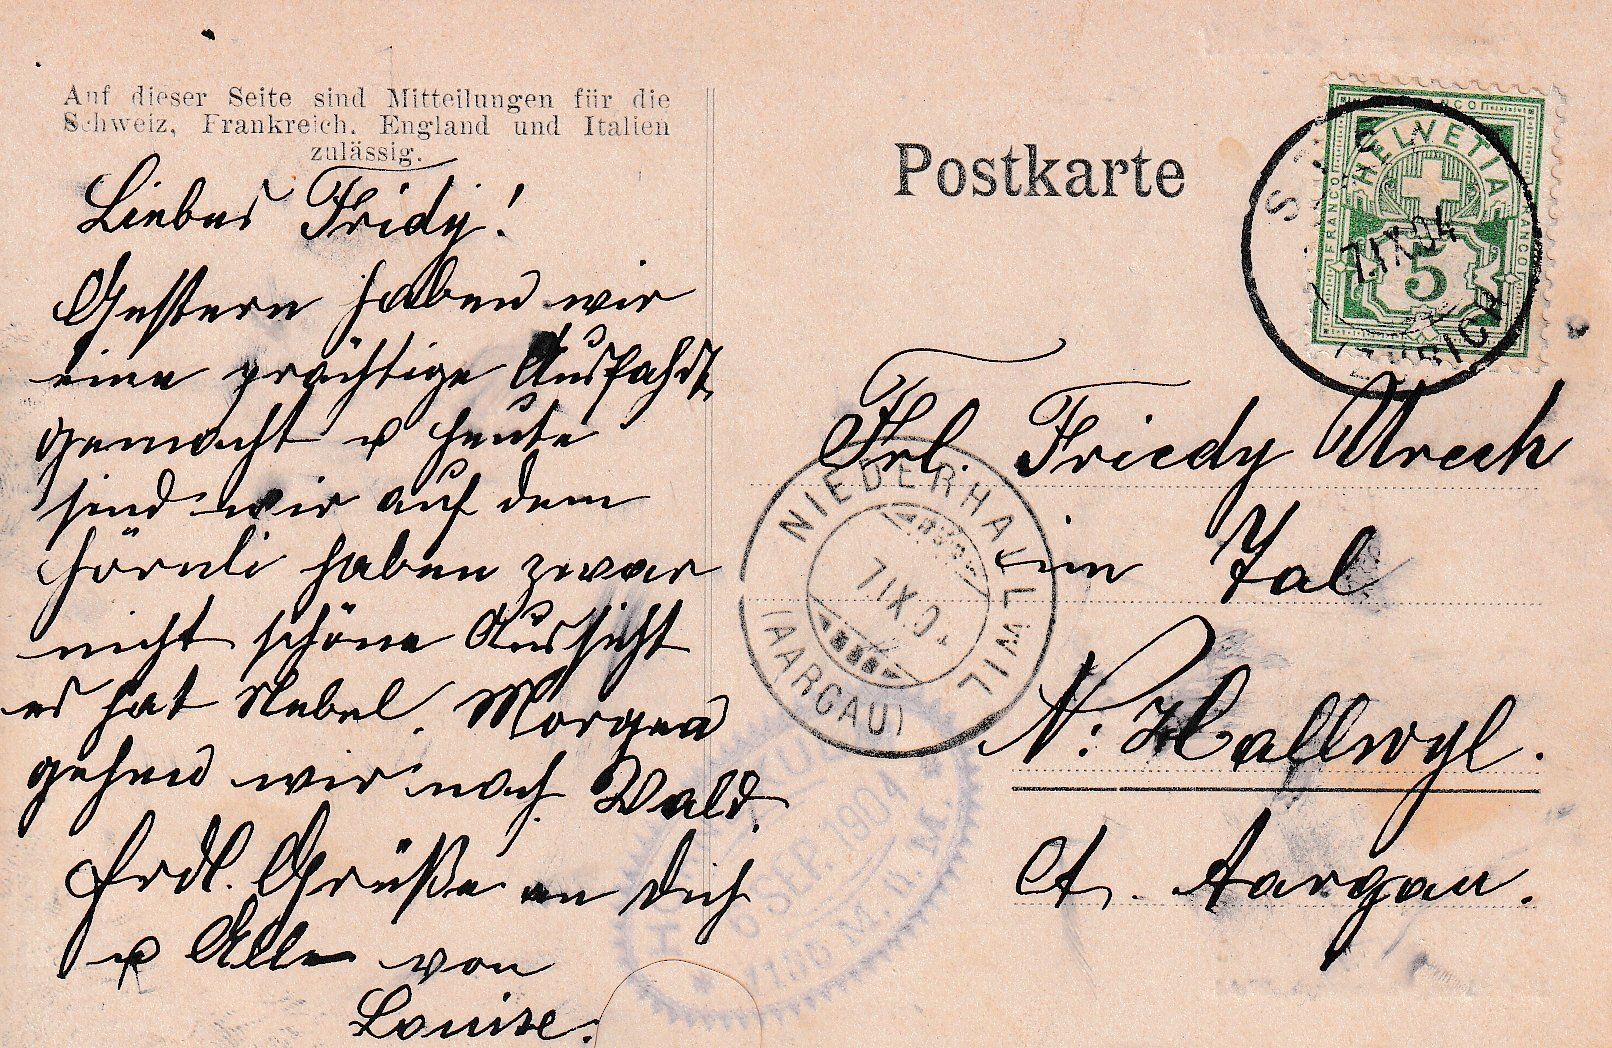 Auf dieser Seite sind Mitteilungen für die
Schweiz, Frankreich, England und Italien
zulässig.
Liebes Fridy!
Gestern haben wir
eine prächtige Ausfahrt
gemacht u heute
sind wir auf dem
Hörnli haben zwar
nicht schöne Aussicht
es hat Nebel. Morgen
gehen wir nach Wald.
Frdl. Grüße an Dich
u Alle von
Louise.
Postkarte
HELVETIA
FRANCO
FRANCO
FRANCO
5
7.IX.04
(ZÜRICH)
Frl. Friedy Urech
im Tal
N: Hallwyl.
Ct. Aargau.
NIEDERHALLWIL
7 IX.0
(AARGAU)
SEP. 1904
M. ü. M.